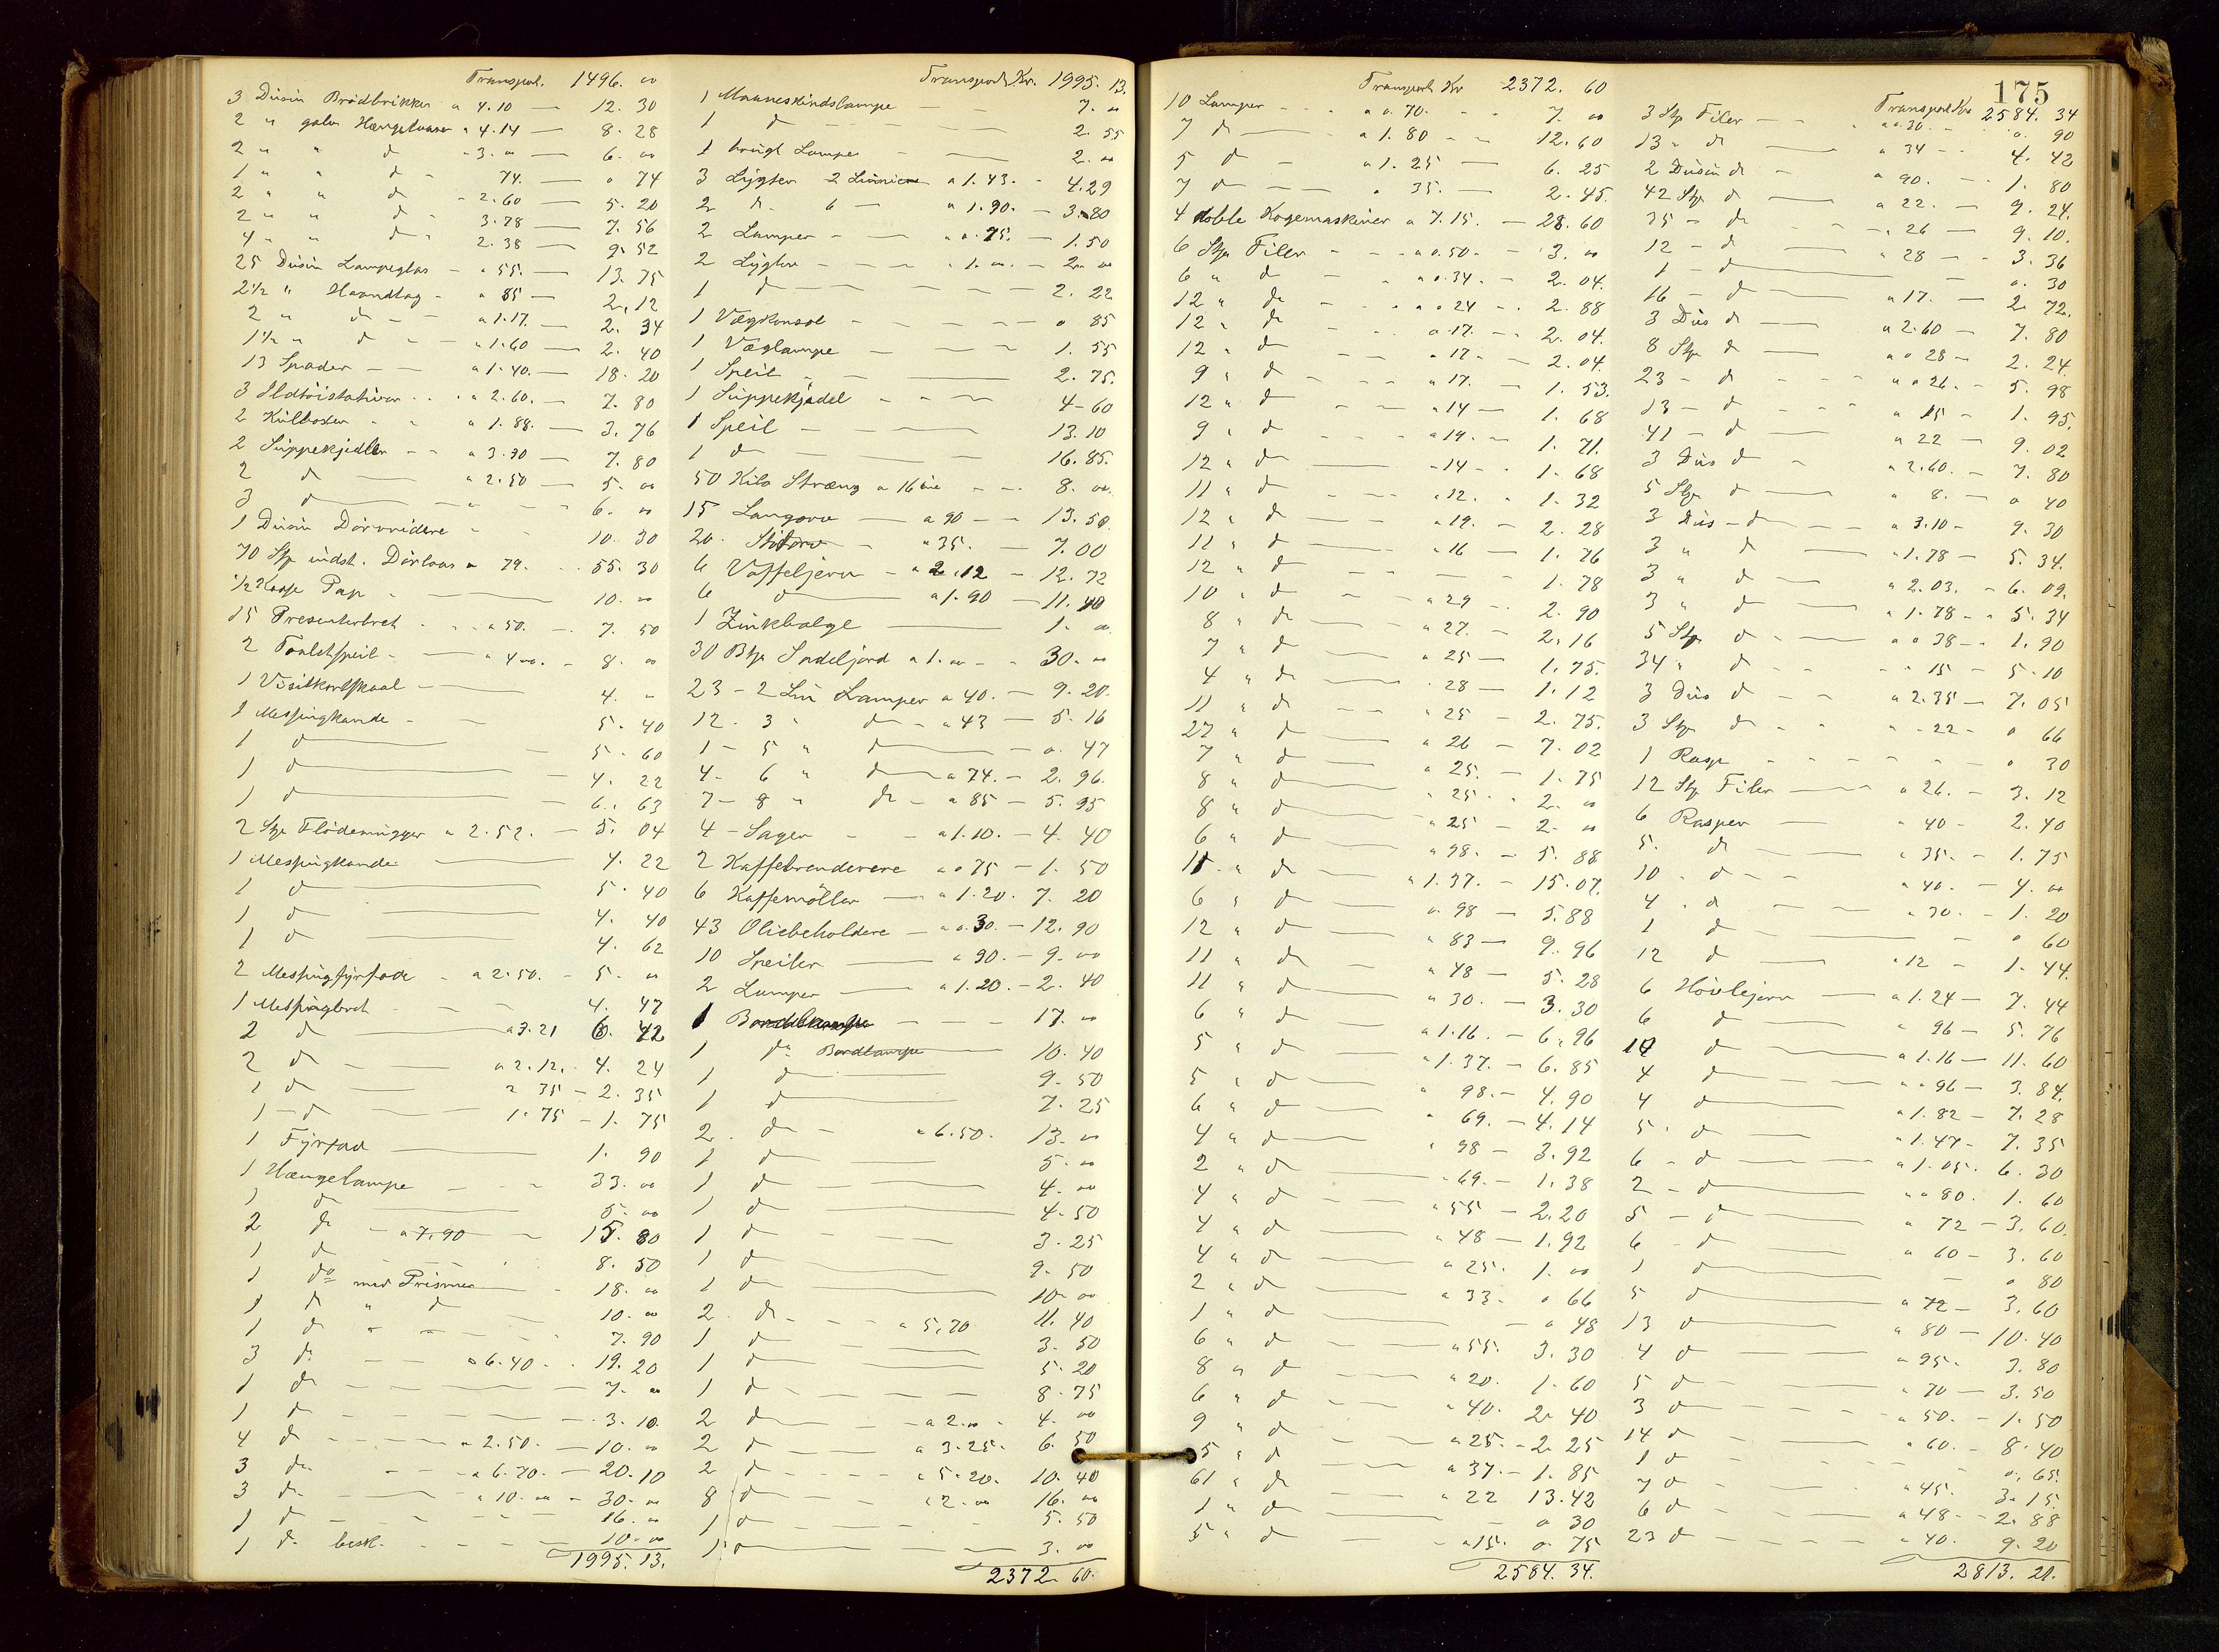 Transport. 1496. 00
3 Dusin Brödbrikker a 4.10 — 12. 30
2 " galv Hængelaaser " 4.14 — 8. 28
2 " " d - 3. 00 — 6. 00
1 " " d - 74. — 0 74
2 " " d - 2.60 — 5. 20
2 " " d - 3.78 — 7. 56
4 " " d " 2.38 — 9. 52
25 Dusin Lampeglas - a 55. — 13. 75
2 1/2 " Haandtag - a 85 — 2,12
2 " d - - a 1.17. — 2. 34
1 1/2 " d - - " 1.60 — 2. 40
13 Spader - - a 1.40. — 18. 20
3 Ildtöistativer . . . a 2.60. — 7. 80
2 Kulboxer - - a 1.88. — 3. 76
2 Suppekjedler - - a 3.90 — 7. 80
2 d — a 2.50 — 5. 00
3 d — - - 6. 00
1 Dusin Dörvridere - 10. 30
70 Stk indst. Dörlaas a 79. - 55. 30
1/2 Kasse Pap - — 10. 00
15 Presenterbret - - - a 50. - 7. 50
2 Toaletspeil - — a 4.00. - 8. 00
1 Visitkortskaal — 4. -
1 Messingkande - - 5. 40
1 d — 5. 60
1 d — 4. 22
1 d — 6. 63
2 Stk Flödemugger a 2.52. — 5. 04
1 Messingkande — 4. 22
1 d — 5. 40
1 d — 4. 40
1 d — 4. 62
2 Messingfyrfade - a 2.50. - 5. 00
1 Messingbret - - - 4. 47
2 d — a 3.21 6. 42
2 d - — a 2.12. - 4. 24
1 d — 2 35 - 2. 35
1 - d — 1.75 - 1. 75
1 Fyrfad — 1. 90
1 Hængelampe - - - 33. 00
1 d — 5. 00
2 d - a 7.90 - 15. 80
1 d - - - 8. 50
1 do med Prismer — 18. 00
1 d " d — 10. 00
1 d " - - - - 7. 90
3 d - - a 6.40 - - 19. 20
1 d - - - - 7. 00
1 d - - - - 3. 10.
4 d - - - a 2.50. — 10. 00
3 d - - - a 6.70. — 20. 10
3 d - — a 10. 00 - 30. 00
1 d - - - - 16. 00
1 d besk. - - - 10. 00
1995. 13.
Transport Kr. 1995. 13.
1 Maaneskindslampe - - 7. 00
1 d - - - 2. 55
1 brugt Lampe - — 2. 00
3 Lygter 2 Linier a 1.43. - 4.29
2 d - 6 — a 1.90. — 3.80
2 Lamper - — " 0.75. — 1.50
2 Lygter - - - " 1.00. — 2. 00
1 d — - - - 2. 22
1 Vægkonsol - - - - 0 85
1 Væglampe — - - 1. 55
1 Speil - - — 2. 75.
1 Suppekjedel - - - 4 - 60
1 Speil - - - - 13.10
1 d — - 16. 85.
50 Kilo Stræng a 16 öre - - 8. 00.
15 Langorv — a 90 - - 13. 50
20. Stutorv - " 35. — 7. 00
6 Vaffeljern - a 2,12 — 12. 72
6 d — a 1.90 — 11. 40
1 Zinkbalge — 1. 00
30 Btk Sadeljord a 1.00 - - 30. 00
23 - 2 Lin Lamper a 40. — 9. 20.
12. 3 " d - a 43 — 5. 16
1 - 5 " d — 0. 47
4 - 6 " d — a 74. - 2. 96.
7 - 8 " d - a 85 — 5. 95
4 - Sager - - a 1.10. — 4. 40
2 Kaffebrenderere a 0 75 — 1. 50
6 Kaffemöller — a 1.20. 7. 20
43 Oliebeholdere — a 0.30. — 12. 90
10 Speiler — a 90. - 9. 00
2 Lamper — a 1.20. - 2. 40
1 Bordlampe - - - 17. 00
1 d Bordlampe — 10. 40
1 d — 9. 50
1 d — 7. 25
2. d - " 6.50. 13. 00
1 d — 5. 00
1 d — 4. 00
1 d — 4. 50
1 d — 3. 25
1 d — 9. 50
1 d — 10. 00
2. d - - - a 5,70 11. 40
1 d — 3. 50
1 d — 5. 20
1 d - - - - 8. 75
2 d — - a 2.00 - 4. 00
2 d - — a 3.25. 6. 50
2 d - - - a 5.20. 10. 40
8 d - - - a 2.00 16. 00
1 d - - - - 5. 50
1 d — 3. 00
2372. 60.
175
Transport Kr 2372. 60
10 Lamper - - - a 0. 70. - - 7. 00
7 d — a 1. 80 - - 12. 60
5 d - a 1. 25 — 6. 25
7 d — - a 35. — 2. 45.
4 doble Kogemaskiner a 7.15. — 28. 60
6 Stk Filer - - - a 0.50. - 3. 00
6 " d - - a 0.34. - 2. 04.
12 " d - - - a 0 24 - - 2. 88
12 " d - - - a 17. - - 2. 04.
12 " d - - a 17 - - 2. 04.
9 " d - - - a 17. — 1. 53.
12 " d - - a 14 — 1. 68
9 " d - - - a 19. - - 1. 71.
12 " d — - 14 - - 1. 68
11 " d - - - " 12. " 1. 32
12 " d — " 19. - 2. 28
11 " d — " 16 — 1. 76
12 " d - - - - 1. 78
10 " d - - a 29 - - 2. 90
8 " d — " 27. — 2. 16
7 " d — a 25 — 1. 75.
4 " d — 28 — 1. 12
11 " d - - " 25 - 2. 75.
27 " d — a 26 - 7. 02
7 " d — a 25. — 1. 75
8 " d — " 25 " 2. 00
8 " d — a 25 - 2. 00
6 " d — a 98. - 5. 88
11 " d — a 1.37. — 15. 07.
6 " d — a. 98 — 5. 88
12 " d — " 83 — 9. 96
11 " d — " 48 — 5. 28
11 " d — a 30. — 3. 30
6 " d — a 1.16. — 6. 96
5 " d — " 1.37. — 6. 85
5 " d — " 98. — 4. 90
6 " d — " 69. — 4. 14
4 " d — " 98 — 3. 92
2 " d — - 69. — 1. 38
4 " d — - " 55 — 2. 20
4 " d — " 48 — 1. 92
4 " d — a 25. 1. 00
2 " d — a 33. 0 66
1 " d — 0 48
6 " d — a 55. 3. 30
8 " d — " 20. 1. 60
6 " d - - " 40. 2. 40
9 " d — " 25. - 2. 25
5 " d — a 37. — 1. 85
61 " d - - a 22 13. 42
1 " d — 0 30
5 " d — - a 15. 0. 75
2584. 34.
Transport Kr 2584. 34
3 Stk Filer - - a 0.30. - - 0. 90
13 " d — a 34 - - 4. 42
2 Dusin d - a 90. - - 1. 80
42 Stk d — a 22. - - 9. 24.
35 - d - - - a 26 - 9. 10.
12 - d — a 28 - - 3. 36
1 - d — 0. 30
16 - d — a 17. — 2. 72.
3 Dus d — a 2.60 — 7. 80
8 Stk d — a 0 28 - 2. 24
23 - d - - - a 0 26. - 5. 98
13 - d - - - a 15 - 1. 95.
41 - d — a 22 — 9. 02
3 Dus d - a 2.60. — 7. 80
5 Stk d — " 8. — 0 40
3 Dus - d — a 3.10 - 9. 30
3 " d — " 1.78 — 5. 34.
3 " d — a 2. 03. - 6. 09.
3 " d — a 1.78 - - 5. 34
5 Stk d - — a 0 38 - - 1. 90
34 " d - - - - 15 - 5. 10
3 Dus d - - a 2.35 — 7. 05
3 Stk d - - " - 22 - 0 66
1 Rasp - - - - - 0 30
12 Stk Filer — a 26. - 3. 12
6 Rasper — " 40 - 2. 40
5. d — " 35. - 1. 75
10 " d - - a 40. - 4. 00
4 " d - - - " 30. - 1. 20
1 d — 0 60
12 d — " 12 - 1. 44.
6 Hövlejern — a 1.24 — 7. 44
6 d — a 96 — 5. 76
10 d — a 1.16 — 11. 60
4 d — " 0 96 — 3. 84.
4 d — a 1.82 — 7. 28
5 " d — a 1.47 - 7. 35
6 - d — a 1.05. 6. 30
2 - d — " 0 80. 1. 60
5 - d — a 72 — 3. 60.
6 d — a 60 - 3. 60
1 d — 0 80
5 d — a 72 - 3. 60
13 d — a 80 — 10. 40
4 d — a 95. 3. 80
5 d - — " 70 — 3. 50
3 d — a 50. - 1. 50
14 d - - a 60. - 8. 40
1 d - - - 0, 65.
7 d - - - a 45. 3. 15.
6 d — a 48 - - 2. 88
23 d - - - " 40. 9. 20
2813. 21.